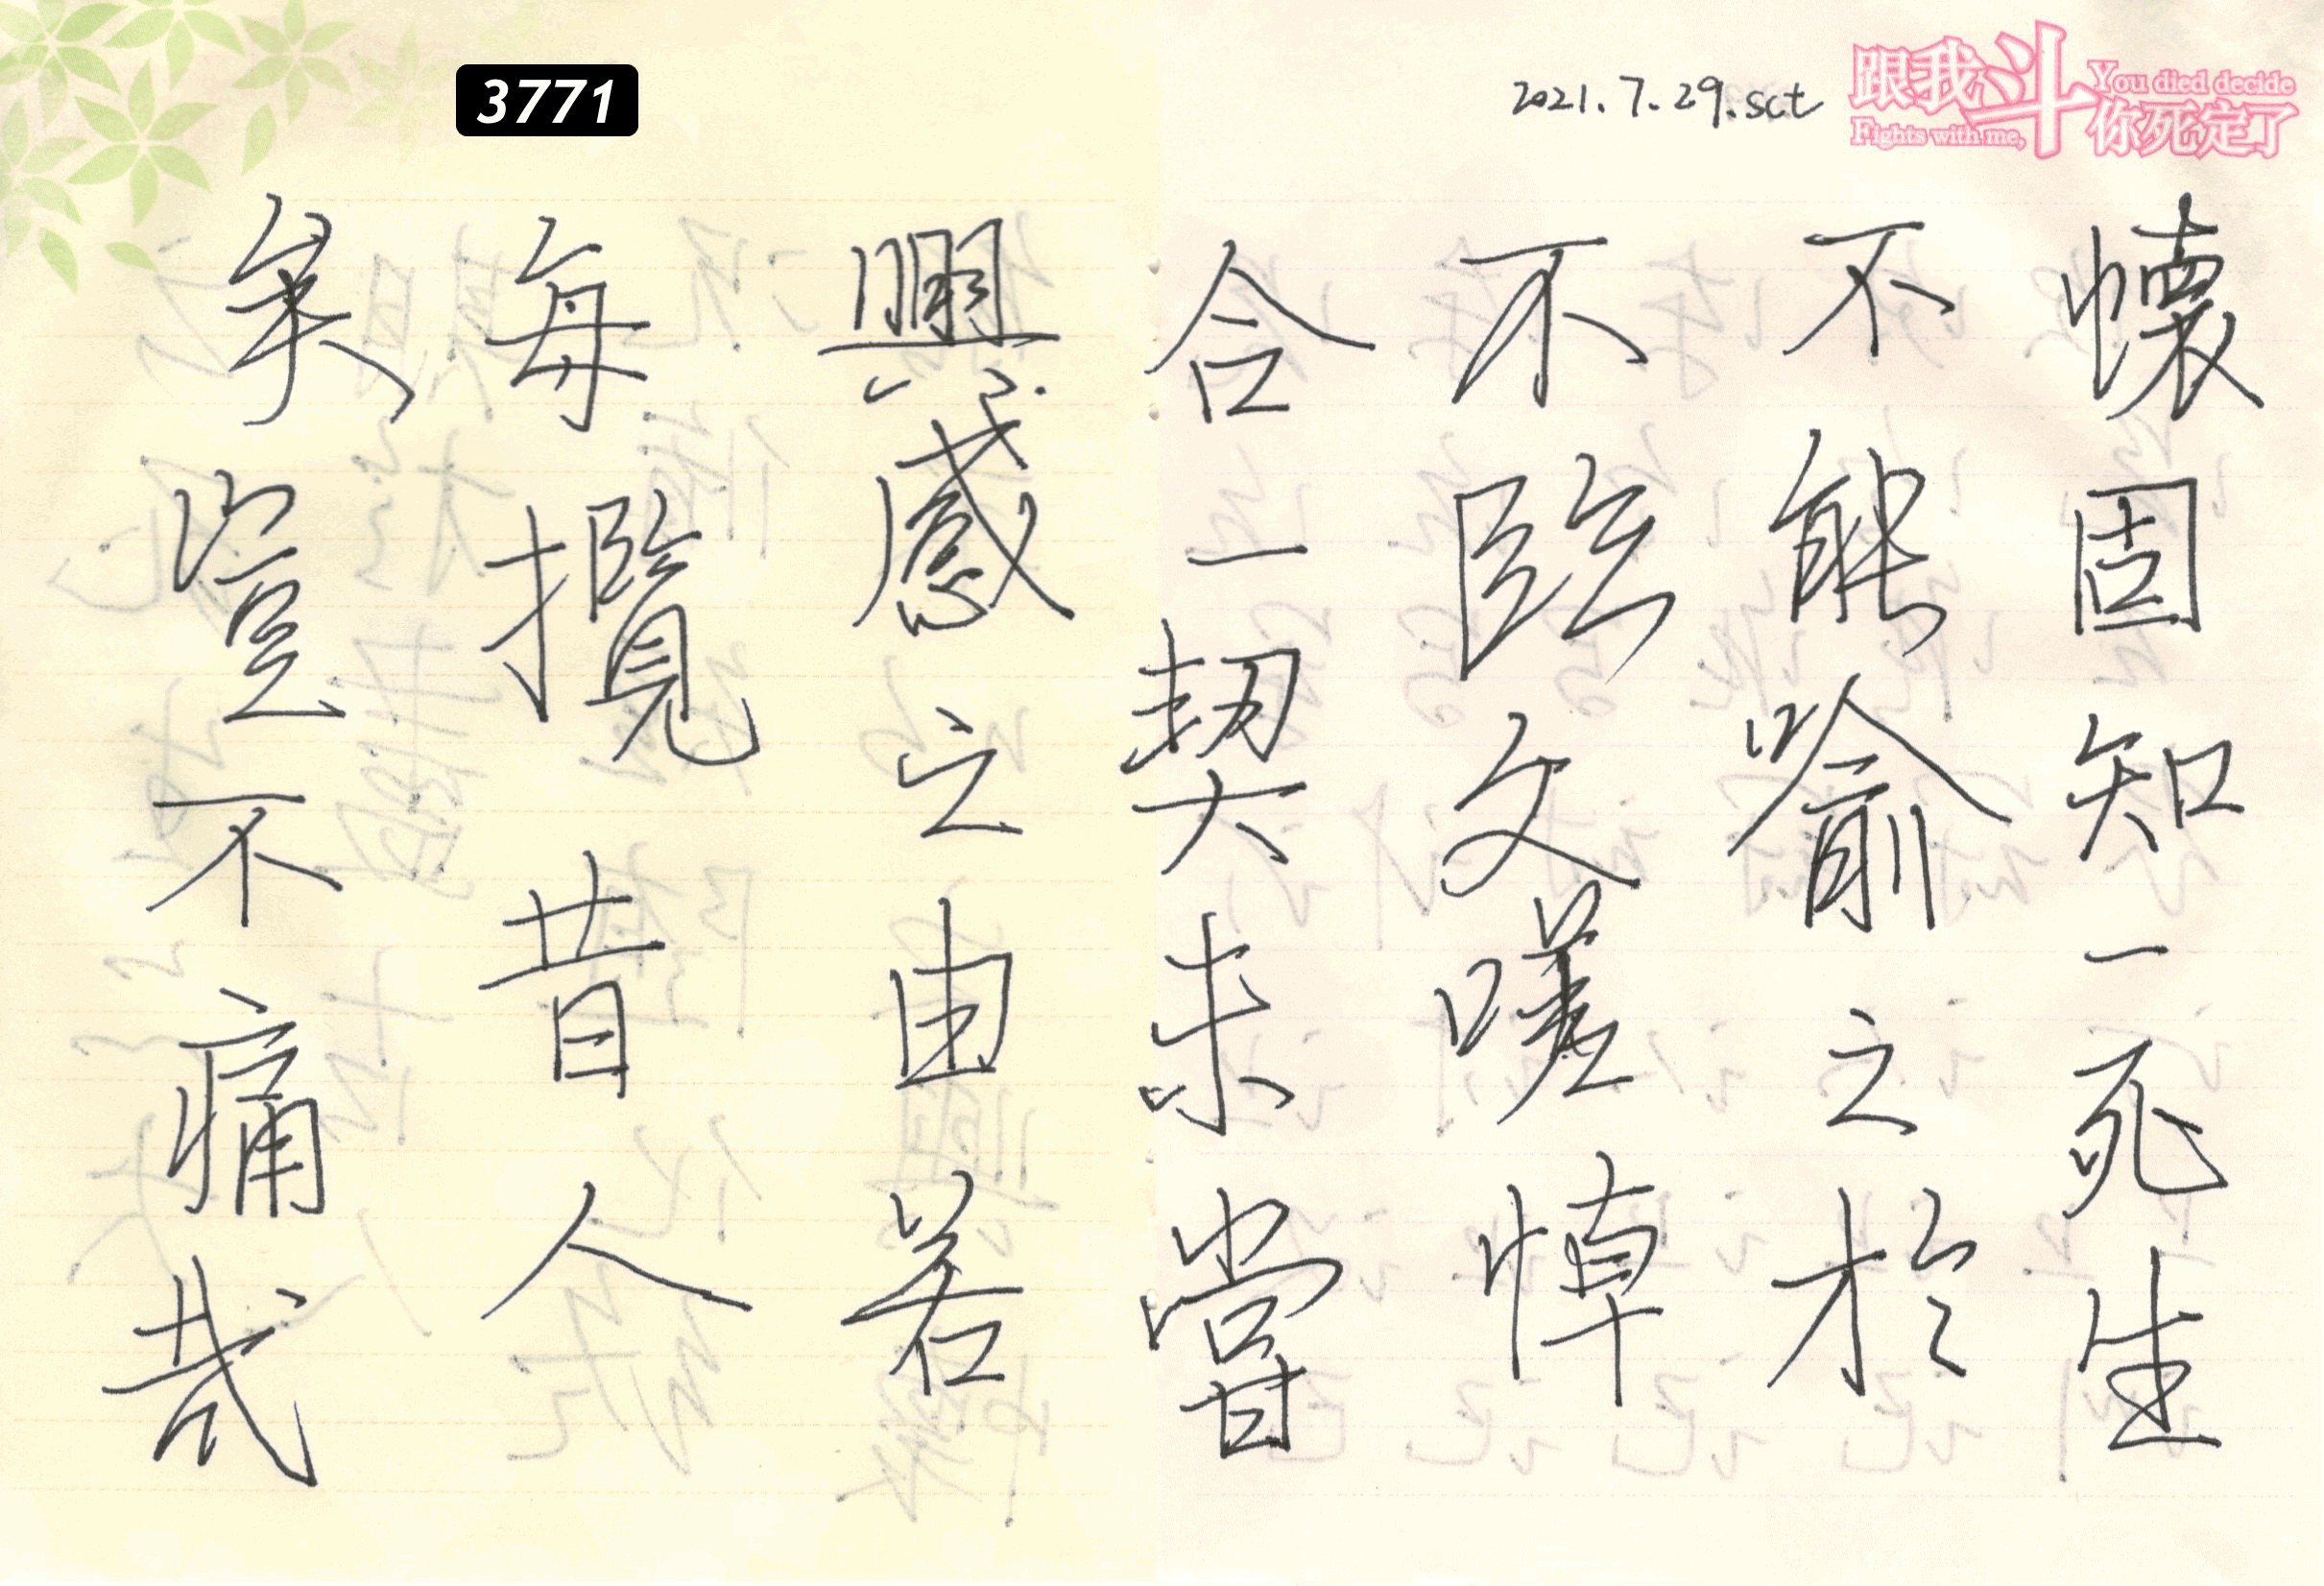 3771
2021.7.29.sct
跟我斗你死定了
Fights with me, You died decide
懐固知一死生
不能喻之於
不臨文嗟悼
合一契未嘗
興感之由若
每攬昔人
矣豈不痛哉